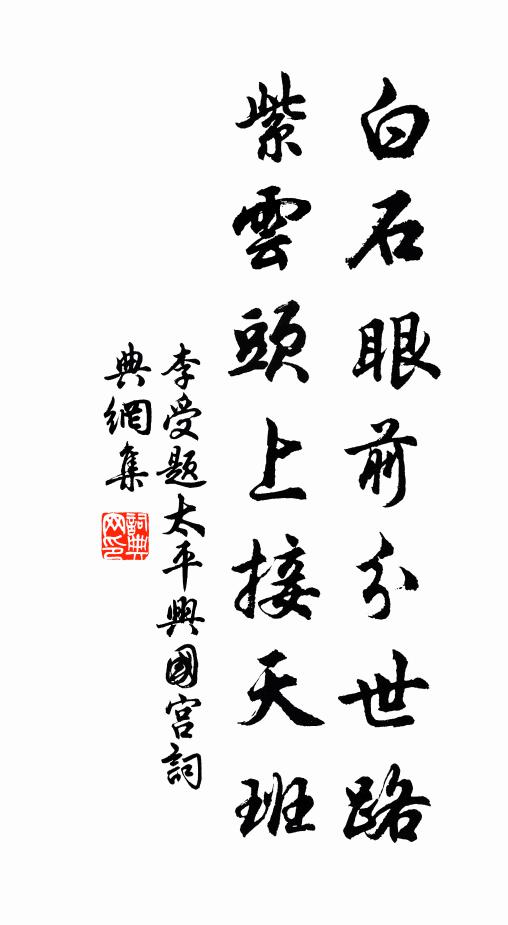 白石眼前分世路
紫雲頭上接天班
李受題太平興國宮詞
典網集
詞典
網印